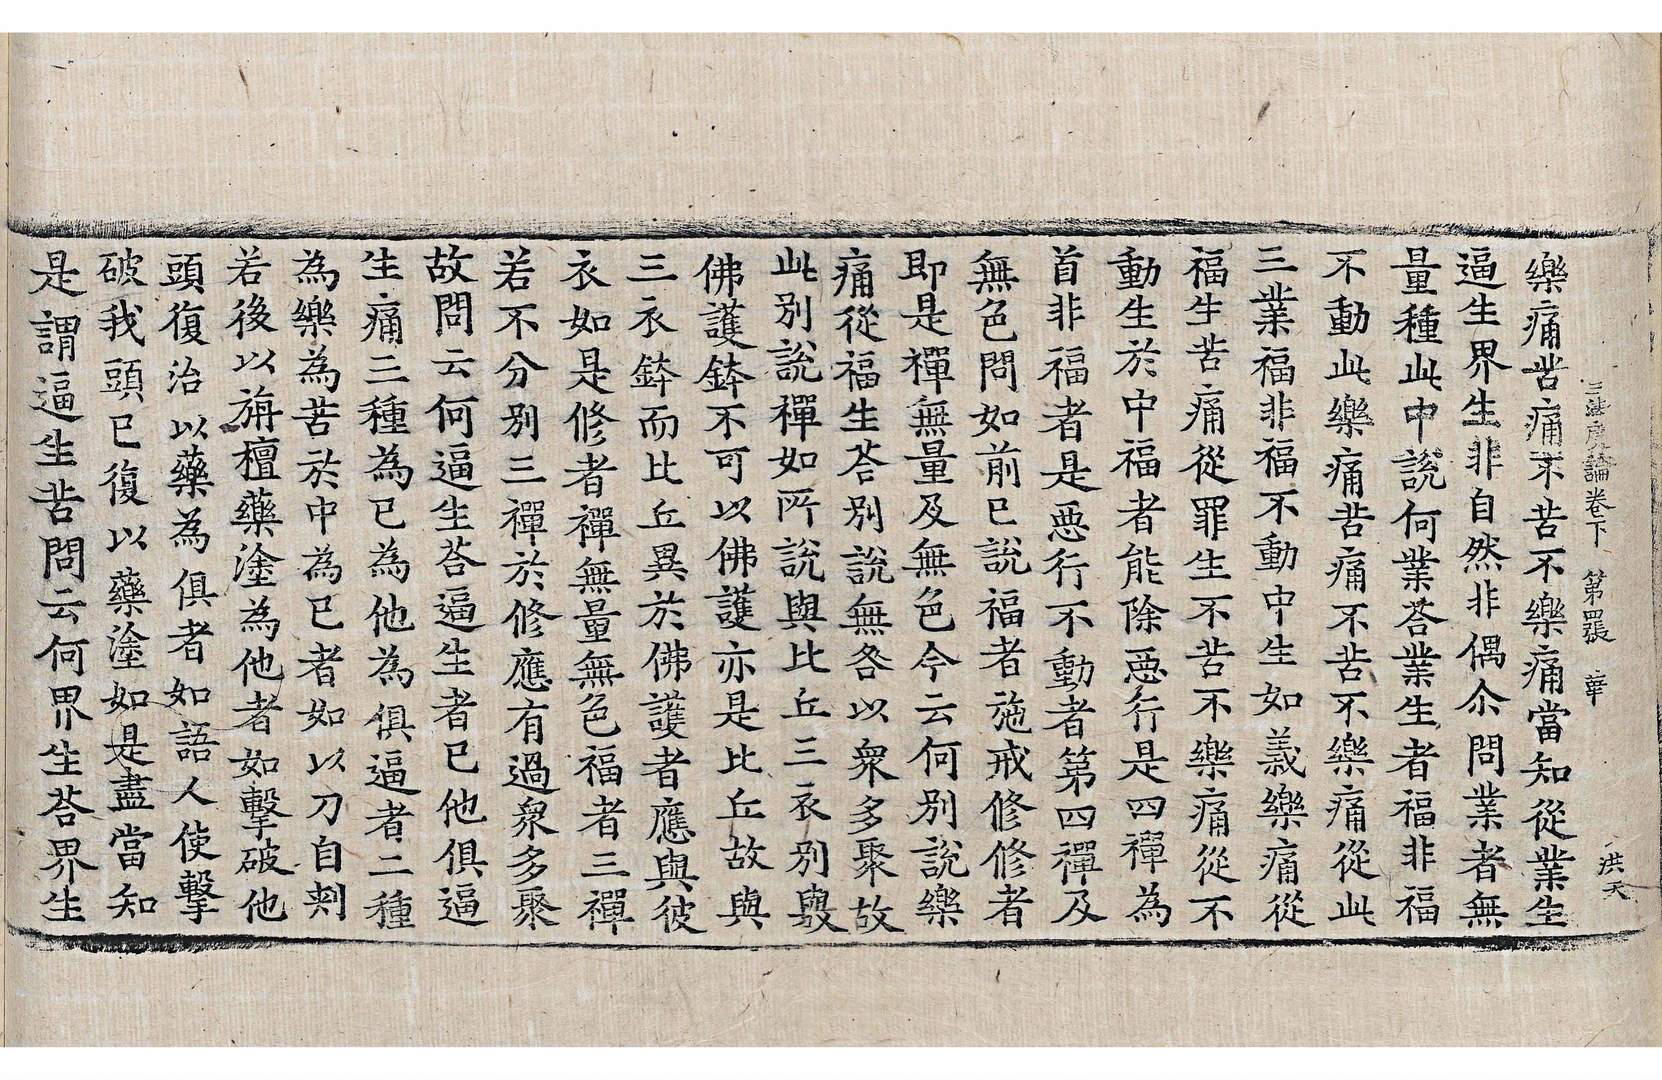 三法度論卷下 第四張 華 洪天
樂痛苦痛不苦不樂痛當知從業生
逼生界生非自然非偶尒問業者無
量種此中說何業荅業生者福非福
不動此樂痛苦痛不苦不樂痛從此
三業福非福不動中生如義樂痛從
福生苦痛從罪生不苦不樂痛從不
動生於中福者能除惡行是四禪為
首非福者是惡行不動者第四禪及
無色問如前已說福者施戒修修者
即是禪無量及無色今云何別說樂
痛從福生荅別說無咎以衆多聚故
此別說禪如所說與比丘三衣別與
佛護鉢不可以佛護亦是比丘故與
三衣鉢而比丘異於佛護者應與彼
衣如是修者禪無量無色福者三禪
若不分別三禪於修應有過衆多聚
故問云何逼生荅逼生者已他俱逼
生痛三種為已為他為俱逼者二種
為樂為苦於中為已者如以刀自刺
若後以旃檀藥塗為他者如擊破他
頭復治以藥為俱者如語人使擊
破我頭已復以藥塗如是盡當知
是謂逼生苦問云何界生荅界生